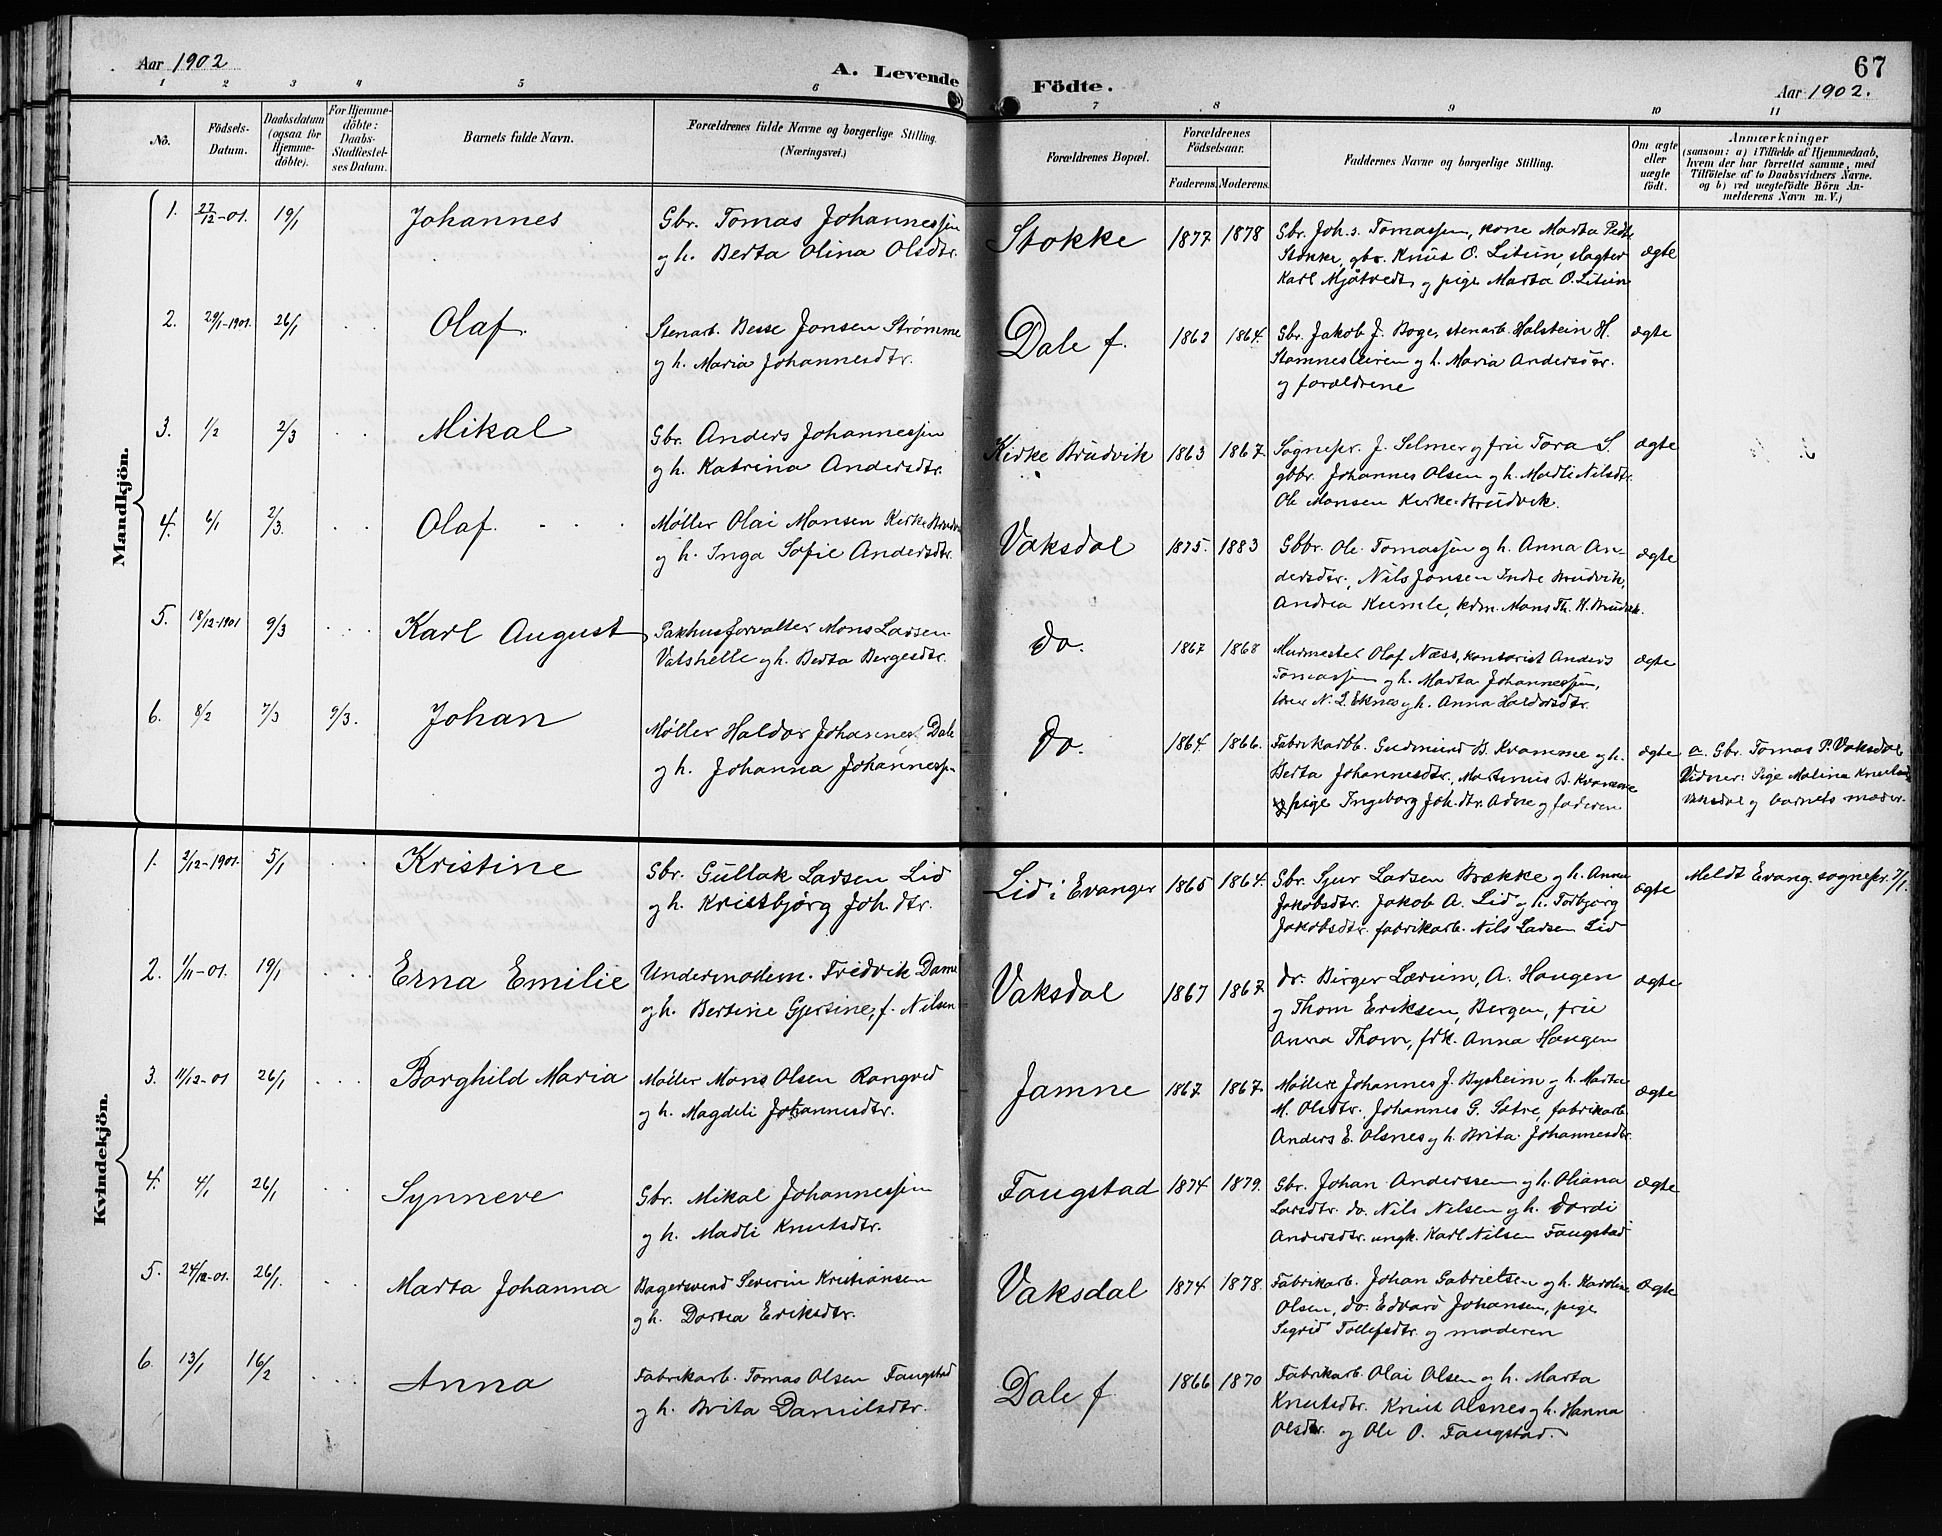 Aar 1902
A. Levende Födte.
67
Aar 1902.
1 2 3 4 5 6 7 8 9 10 11
No.
Födsels-Datum.
Daabsdatum (ogsaa for Hjemmedöbte).
For Hjemmedöbte: Daabs-Stadfæstelses Datum.
Barnets fulde Navn.
Forældrenes fulde Navne og borgerlige Stilling. (Næringsvei.)
Forældrenes Bopæl.
Forældrenes Födselsaar.
Faderens.
Moderens.
Faddernes Navne og borgerlige Stilling.
Om ægte eller uægte födt.
Anmærkninger
(saasom: a) i Tilfælde af Hjemmedaab, hvem der har forrettet samme, med Tilföielse af to Daabsvidners Navne. og b) ved uægtefödte Börn Anmelderens Navn m. V.)
Mandkjön.
1. 27/12-01. 19/1 Johannes
Gbr. Tomas Johannessen
og h. Berta Olina Olsdtr.
Stokke 1877 1878
Gbr. Joh.s. Tomassen, kone Marta
Stokke, gbr. Knut O. Litun, slagter
Karl Mjåtvedt og pige Marta O. Litun
ægte
2. 29/1-1901. 26/1 Olaf.
Stenarb. Besse Jonsen Strømme
og h. Maria Johannesdtr.
Dale f. 1862 1864.
Gbr. Jakob J. Boge, stenarb. Holstein H.
Stamnesleiren og h. Maria Andersdtr.
og forældrene
ægte
3. 1/2 2/3 Mikal
Gbr. Anders Johannessen
og h. Katrina Andersdtr.
Kirke Brudvik 1863 1867
Sognepr. J. Selmer og frue Tora S.
gbbr. Johannes Olsen og h. Madli Nilsdtr.
Ole Monsen Kirke-Brudvik.
ægte
4. 6/1 2/3. Olaf.
Møller Olai Monsen Kirke Brudvik
og h. Inga Sofie Andersdtr.
Vaksdal 1875. 1883
Gbbr. Ole Tomassen og h. Anna An-
dersdtr., Nils Jonsen Indre Brudvik,
Andrea Kumle, kdm. Mons Th. K. Brudvik.
ægte
5. 18/12-1901 9/3 Karl August
Pakhusforvalter Mons Larsen
Vatshelle og h. Berta Bergesdtr.
do. 1867 1868
Murmester Olaf Næss, kontorist Anders
Tomassen og h. Marta Johannessen,
lærer N. L. Eknes og h. Anna Haldorsdtr.
ægte
6. 8/2 7/3 9/3. Johan
Møller Haldor Johannes. Dale
og h. Johanna Johannessen
do. 1864. 1866.
Fabrikarb. Gudmund B. Kvamme og h.
Berta Johannesdtr., Martinus B. Kvamme
pige Ingeborg Joh.dtr. Adne og faderen
ægte
a. Gbr. Tomas P. Vaksdal
Vidner: Pige Malina
Vaksdal og barnets moder.
Kvindekjön.
1. 2/12-1901. 5/1 Kristine
Gbr. Gullak Larsen Lid
og h. Kristbjørg Joh.dtr.
Lid i Evanger 1865 1864.
Gbr. Sjur Larsen Brække og h. Anna
Jakobsdtr. Jakob A. Lid og h. Torbjørg
Jakobsdtr. fabrikarb. Nils Larsen Lid
ægte
Meldt Evang. sognepr. 7/1.
2. 1/11-01. 19/1 Erna Emilie
Undermødlem. Fredrik Dame
og h. Bertine Gjertine, f. Nilsen
Vaksdal 1867 1867
dr. Birger Lærum, A. Haugen
og Thom Eriksen, Bergen, frue
Anna Thom, frk. Anna Haugen
ægte
3. 11/12-01 26/1 Borghild Maria
Møller Mons Olsen Rongved
og h. Magdeli Johannesdtr.
Jamne 1867 1867.
Møller Johannes J. Bysheim og h. Marta
M. Olsdtr. Johannes G. Sætre, fabrikarb.
Anders E. Olsnes og h. Brita Johannesdtr.
ægte
4. 4/1 26/1 Synneve
Gbr. Mikal Johannessen
og h. Madli Knutsdtr.
Faugstad 1874 1879.
Gbr. Johan Anderssen og h. Oliana
Larsdtr. do. Nils Nilsen og h. Dordi
Andersdtr. ungk. Karl Nilsen Faugstad
ægte
5. 24/12-01. 26/1. Marta Johanna
Bagersvend Severin Kristiansen
og h. Dortea Eriksdtr.
Vaksdal 1874 1878.
Fabrikarb. Johan Gabrielsen og h. Karoline
Olsen, do. Edvard Johansen, pige
Sigrid Tollefsdtr. og moderen
ægte
6. 13/1 16/2 Anna
Fabrikarb. Tomas Olsen Faugstad
og h. Brita Danielsdtr.
Dale f. 1866 1870
Fabrikarb. Olai Olsen og h. Marta
Knutsdtr. Knut Olsnes og h. Hanna
Olsdtr. og Ole O. Faugstad.